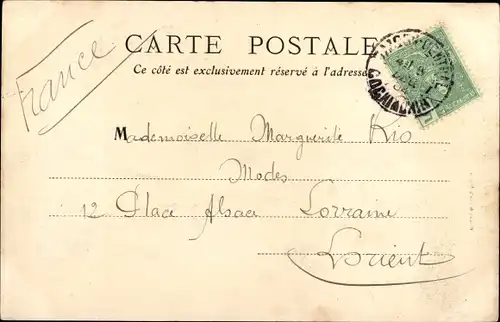 France
CARTE POSTALE
Ce côté est exclusivement réservé à l'adresse
Mademoiselle Marguerite Rio
Modes
12 Place Alsace Lorraine
Lorient
COCHINCHINE